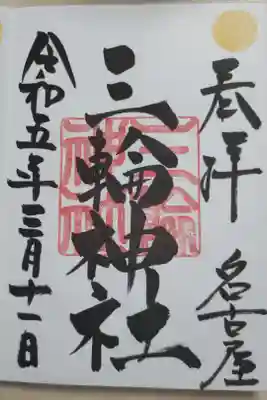 奉拝 名古屋
三輪神社
令和五年三月十一日